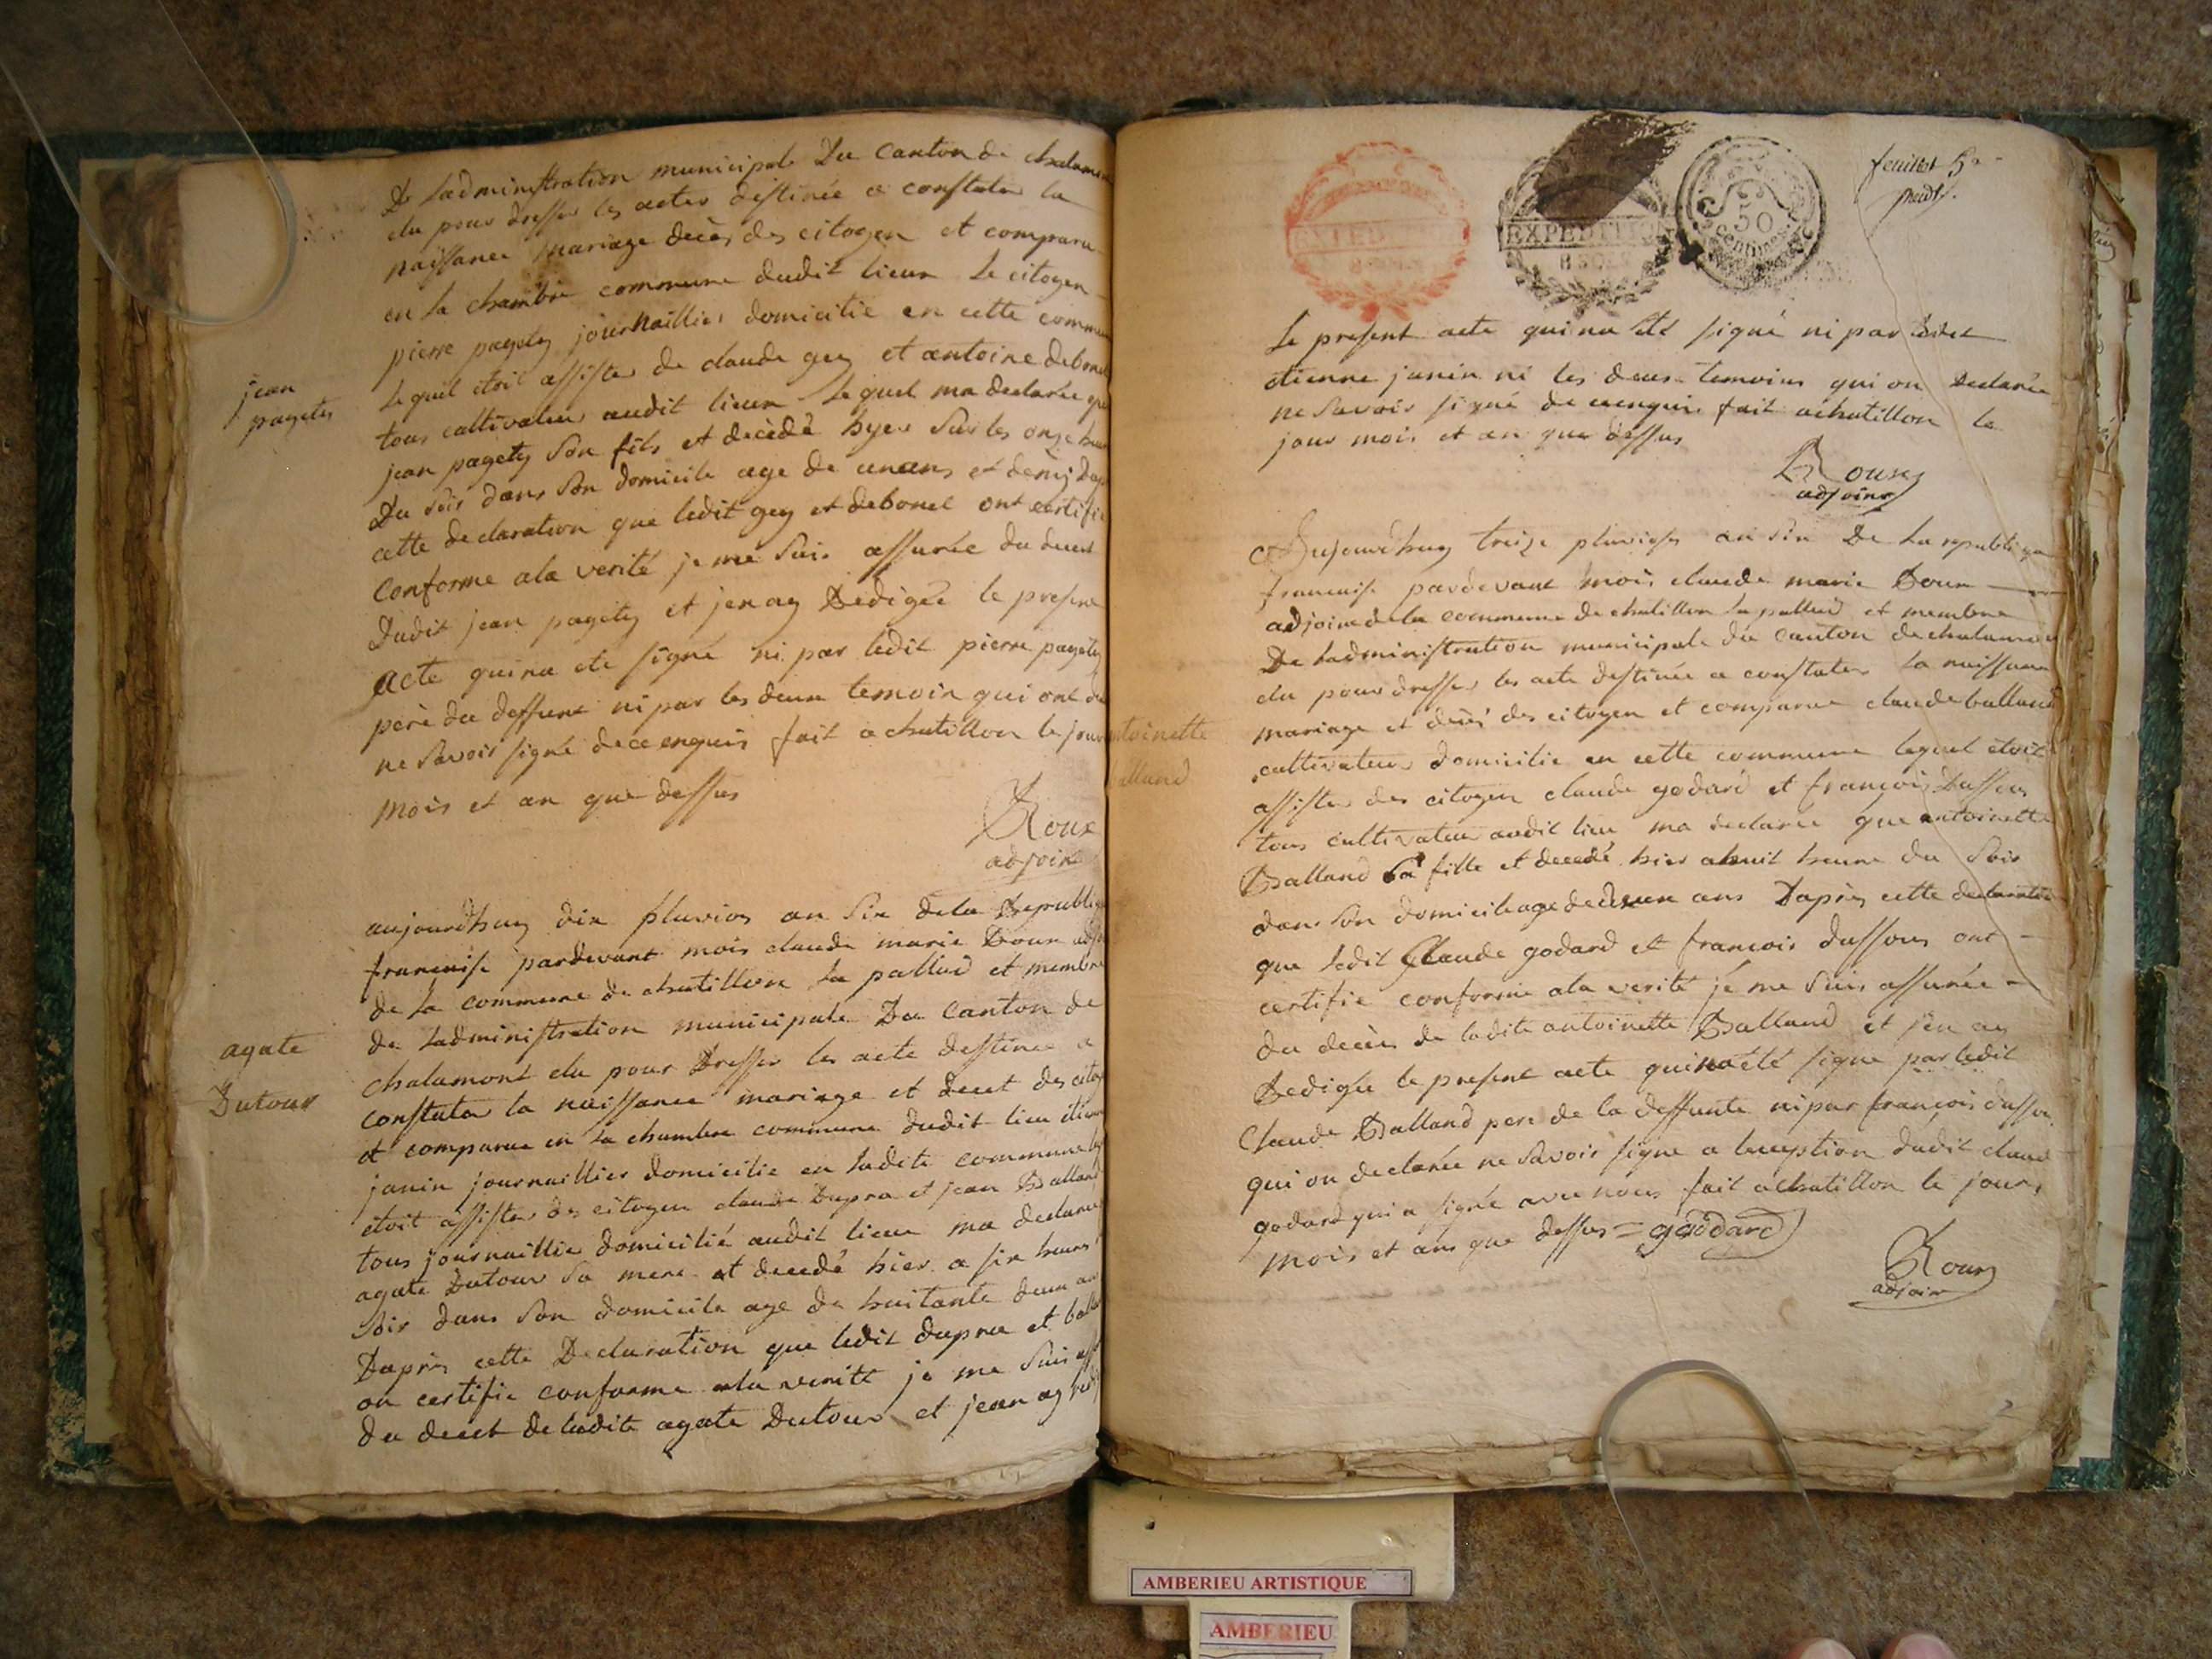 De Ladministration municipale Du Canton de chalamon
elu pour dresser les actes destinée a constater la
naissance mariage decès des citoyen et comparu
en la chambre commune dudit lieux Le citoyen
pierre pagety journaillier domicilie en cette commun
Lequel etoit assister de claude gey et antoine debonel
tous cultivateur audit lieux Lequel ma declarée que
jean pagety son fils et decèdé hyer sur les onze heur
Du soir dans son domicile age de unans et demj Dap
cette declaration que ledit gey et debonel ont certifie
Conforme ala verité je me suis assurée du decet
Dudit jean pagety et jenay Redigée le presen
Acte quina ete signé ni par ledit pierre pagety
père du deffunt ni par les deux temoin qui ont de
ne savoir signé dece enquis fait a chatillon le jour
mois et an que dessus
Roux
adjoint
jean
pagety
aujourdhuy dix pluvios an six dela Republiq
francaise pardevant mois claude marie Roux adj
de la commune de chatillon la pallud et membre
de Ladministration municipale Du Canton de
chalamont elu pour Dresser les acte destinee a
constater la naissance mariage et decet des citoy
et comparue en la chambre commune dudit lieu etienne
janin journaillier domicilie en ladite commune leq
etoit assister des citoyen claude Dupra et jean Balland
tous journaillie domicilié audit lieux ma declaree
agate Dutour sa mere et decedé hier a six heurs
soir dans son domicile age de huitante deux an
Daprès cette Declaration que ledit dupra et ball
on certifie conforme ala verité je me suis ass
du decet de ladite agate Dutour et jean ay redi
agate
Dutour
feuillet 5e
EXPEDITION
50
centimes
Le present acte quina eté signé ni par ledit
etienne janin ni les deux temoins qui on Declarée
ne savoir signé de ce enquis fait achatillon le
jour mois et an que dessus
Roux
adjoint
Aujourdhuy treize pluvioss an six De La republique
francaise pardevant mois claude marie Roux
adjoint de la commune de chatillon la pallud et membre
De Ladministration municipale du canton de chalamon
elu pour dresser les acte destinée a constater la naissance
mariage et decès des citoyen et comparue claude balland
cultivateur domicilie en cette commune lequel etoit
assister des citoyen claude godard et françois Dussous
tous cultivateur audit lieu ma declarée que antoinette
Balland sa fille et decedé hier ahuit heure du soir
dans son domicile age de deux ans Daprès cette declaration
que ledit Claude godard et francois dussous ont
certifie conforme ala verité je me suis assurée
du decès de ladite antoinette Balland et jen ay
Redigée le present acte quinaeté signe par ledit
Claude Balland pere de la deffunte ni par françois dussou
qui on declarée ne savoir signe a lexception dudit claud
godard qui a signée avec nous fait achatillon le jour,
mois et ans que dessus = g godard
Roux
adjoin
ntoinette
alland
AMBERIEU ARTISTIQUE
AMBERIEU